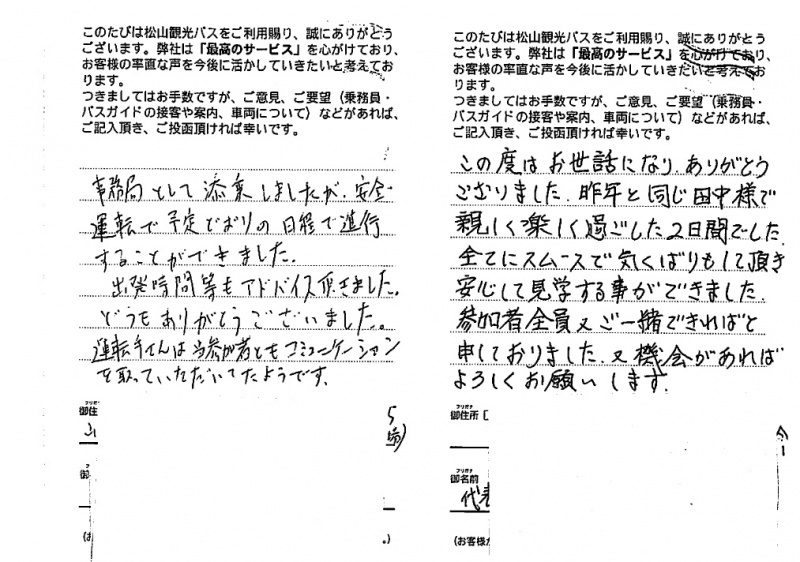 このたびは松山観光バスをご利用賜り、誠にありがとう
ございます。弊社は「最高のサービス」を心がけており、
お客様の率直な声を今後に活かしていきたいと考えてお
ります。
つきましてはお手数ですが、ご意見、ご要望（乗務員・
バスガイドの接客や案内、車両について）などがあれば、
ご記入頂き、ご投函頂ければ幸いです。
事務局として添乗しましたが、安全
運転で予定どおりの日程で進行
することができました。
出発時間等もアドバイス頂きました。
どうもありがとうございました。
運転手さんは当参加者ともコミュニケーション
を取っていただいてたようです。
フリガナ
御住
山
5
フリガナ
御
(お
。)
このたびは松山観光バスをご利用賜り、誠にありがとう
ございます。弊社は「最高のサービス」を心がけており、
お客様の率直な声を今後に活かしていきたいと考えてお
ります。
つきましてはお手数ですが、ご意見、ご要望（乗務員・
バスガイドの接客や案内、車両について）などがあれば、
ご記入頂き、ご投函頂ければ幸いです。
この度はお世話になり、ありがとう
ござりました。昨年と同じ田中様で
親しく楽しく過ごした2日間でした
全てにスムースで気くばりもして頂き
安心して見学する事ができました。
参加者全員又ご一緒できればと
申しておりました。又機会があれば
よろしくお願いします。
フリガナ
御住所
フリガナ
御名前
代表
(お客様が